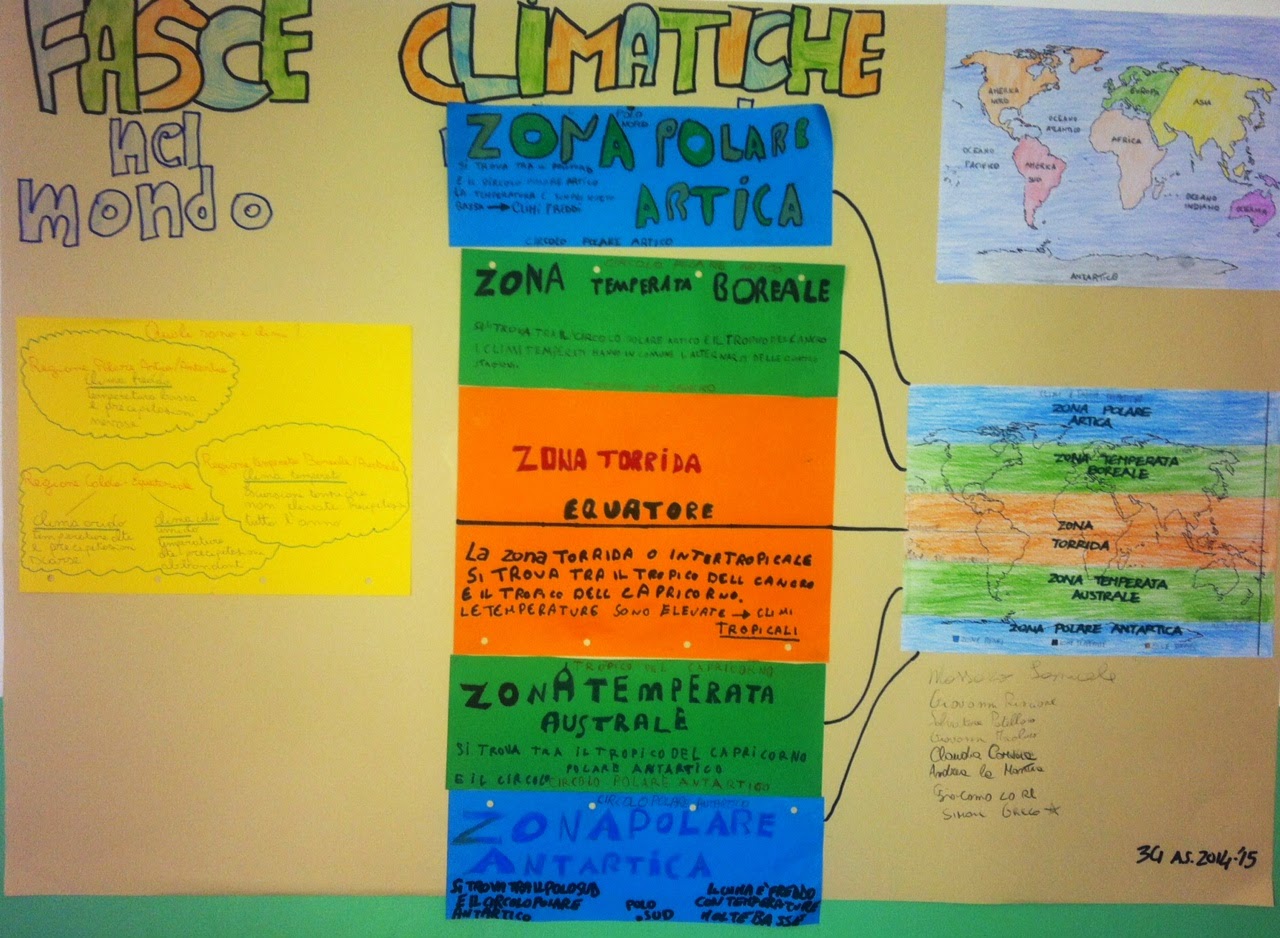 FASCE CLIMATICHE
nel
mondo
POLO
NORD
ZONA POLARE
ARTICA
SI TROVA TRA IL POLO NORD
E IL CIRCOLO POLARE ARTICO
LA TEMPERATURA È SEMPRE MOLTO
BASSA → CLIMI FREDDI
CIRCOLO POLARE ARTICO
CIRCOLO POLARE ARTICO
ZONA TEMPERATA BOREALE
SI TROVA TRA IL CIRCOLO POLARE ARTICO E IL TROPICO DEL CANCRO
I CLIMI TEMPERATI HANNO IN COMUNE L'ALTERNARSI DELLE QUATTRO
STAGIONI.
TROPICO DEL CANCRO
ZONA TORRIDA
EQUATORE
LA ZONA TORRIDA O INTERTROPICALE
SI TROVA TRA IL TROPICO DELL CANCRO
E IL TROPICO DELL CAPRICORNO.
LE TEMPERATURE SONO ELEVATE → CLIMI
TROPICALI
TROPICO DEL CAPRICORNO
ZONA TEMPERATA
AUSTRALE
SI TROVA TRA IL TROPICO DEL CAPRICORNO
POLARE ANTARTICO
E IL CIRCOLO CIRCOLO POLARE ANTARTICO
CIRCOLO POLARE ANTARTICO
ZONA POLARE
ANTARTICA
SI TROVA TRA IL POLO SUD
E IL CIRCOLO POLARE
ANTARTICO
POLO
SUD
IL CLIMA È FREDDO
CON TEMPERATURE
MOLTE BASSE
Quale sono i climi?
Regione Polare Artica/Antartica
clima freddo
temperatura bassa
e precipitazioni
nevose
Regione temperata Boreale/Australe
clima temperato
non elevate
tutto l'anno
Regione Calda-Equatoriale
clima arido
temperature alte
e precipitazioni
scarse
clima caldo
umido
temperature
alte precipitazioni
abbondanti
AMERICA
NORD
EUROPA
ASIA
OCEANO
ATLANTICO
AFRICA
OCEANO
PACIFICO
AMERICA
SUD
OCEANO
INDIANO
OCEANIA
ANTARTICO
ZONA POLARE
ARTICA
ZONA TEMPERATA
BOREALE
ZONA
TORRIDA
ZONA TEMPERATA
AUSTRALE
ZONA POLARE ANTARTICA
Giovanni
Salvatore
Giovanni
Claudia
Andrea La Mantia
Giacomo Lo Re
Simone Greco
3G AS. 2014-15